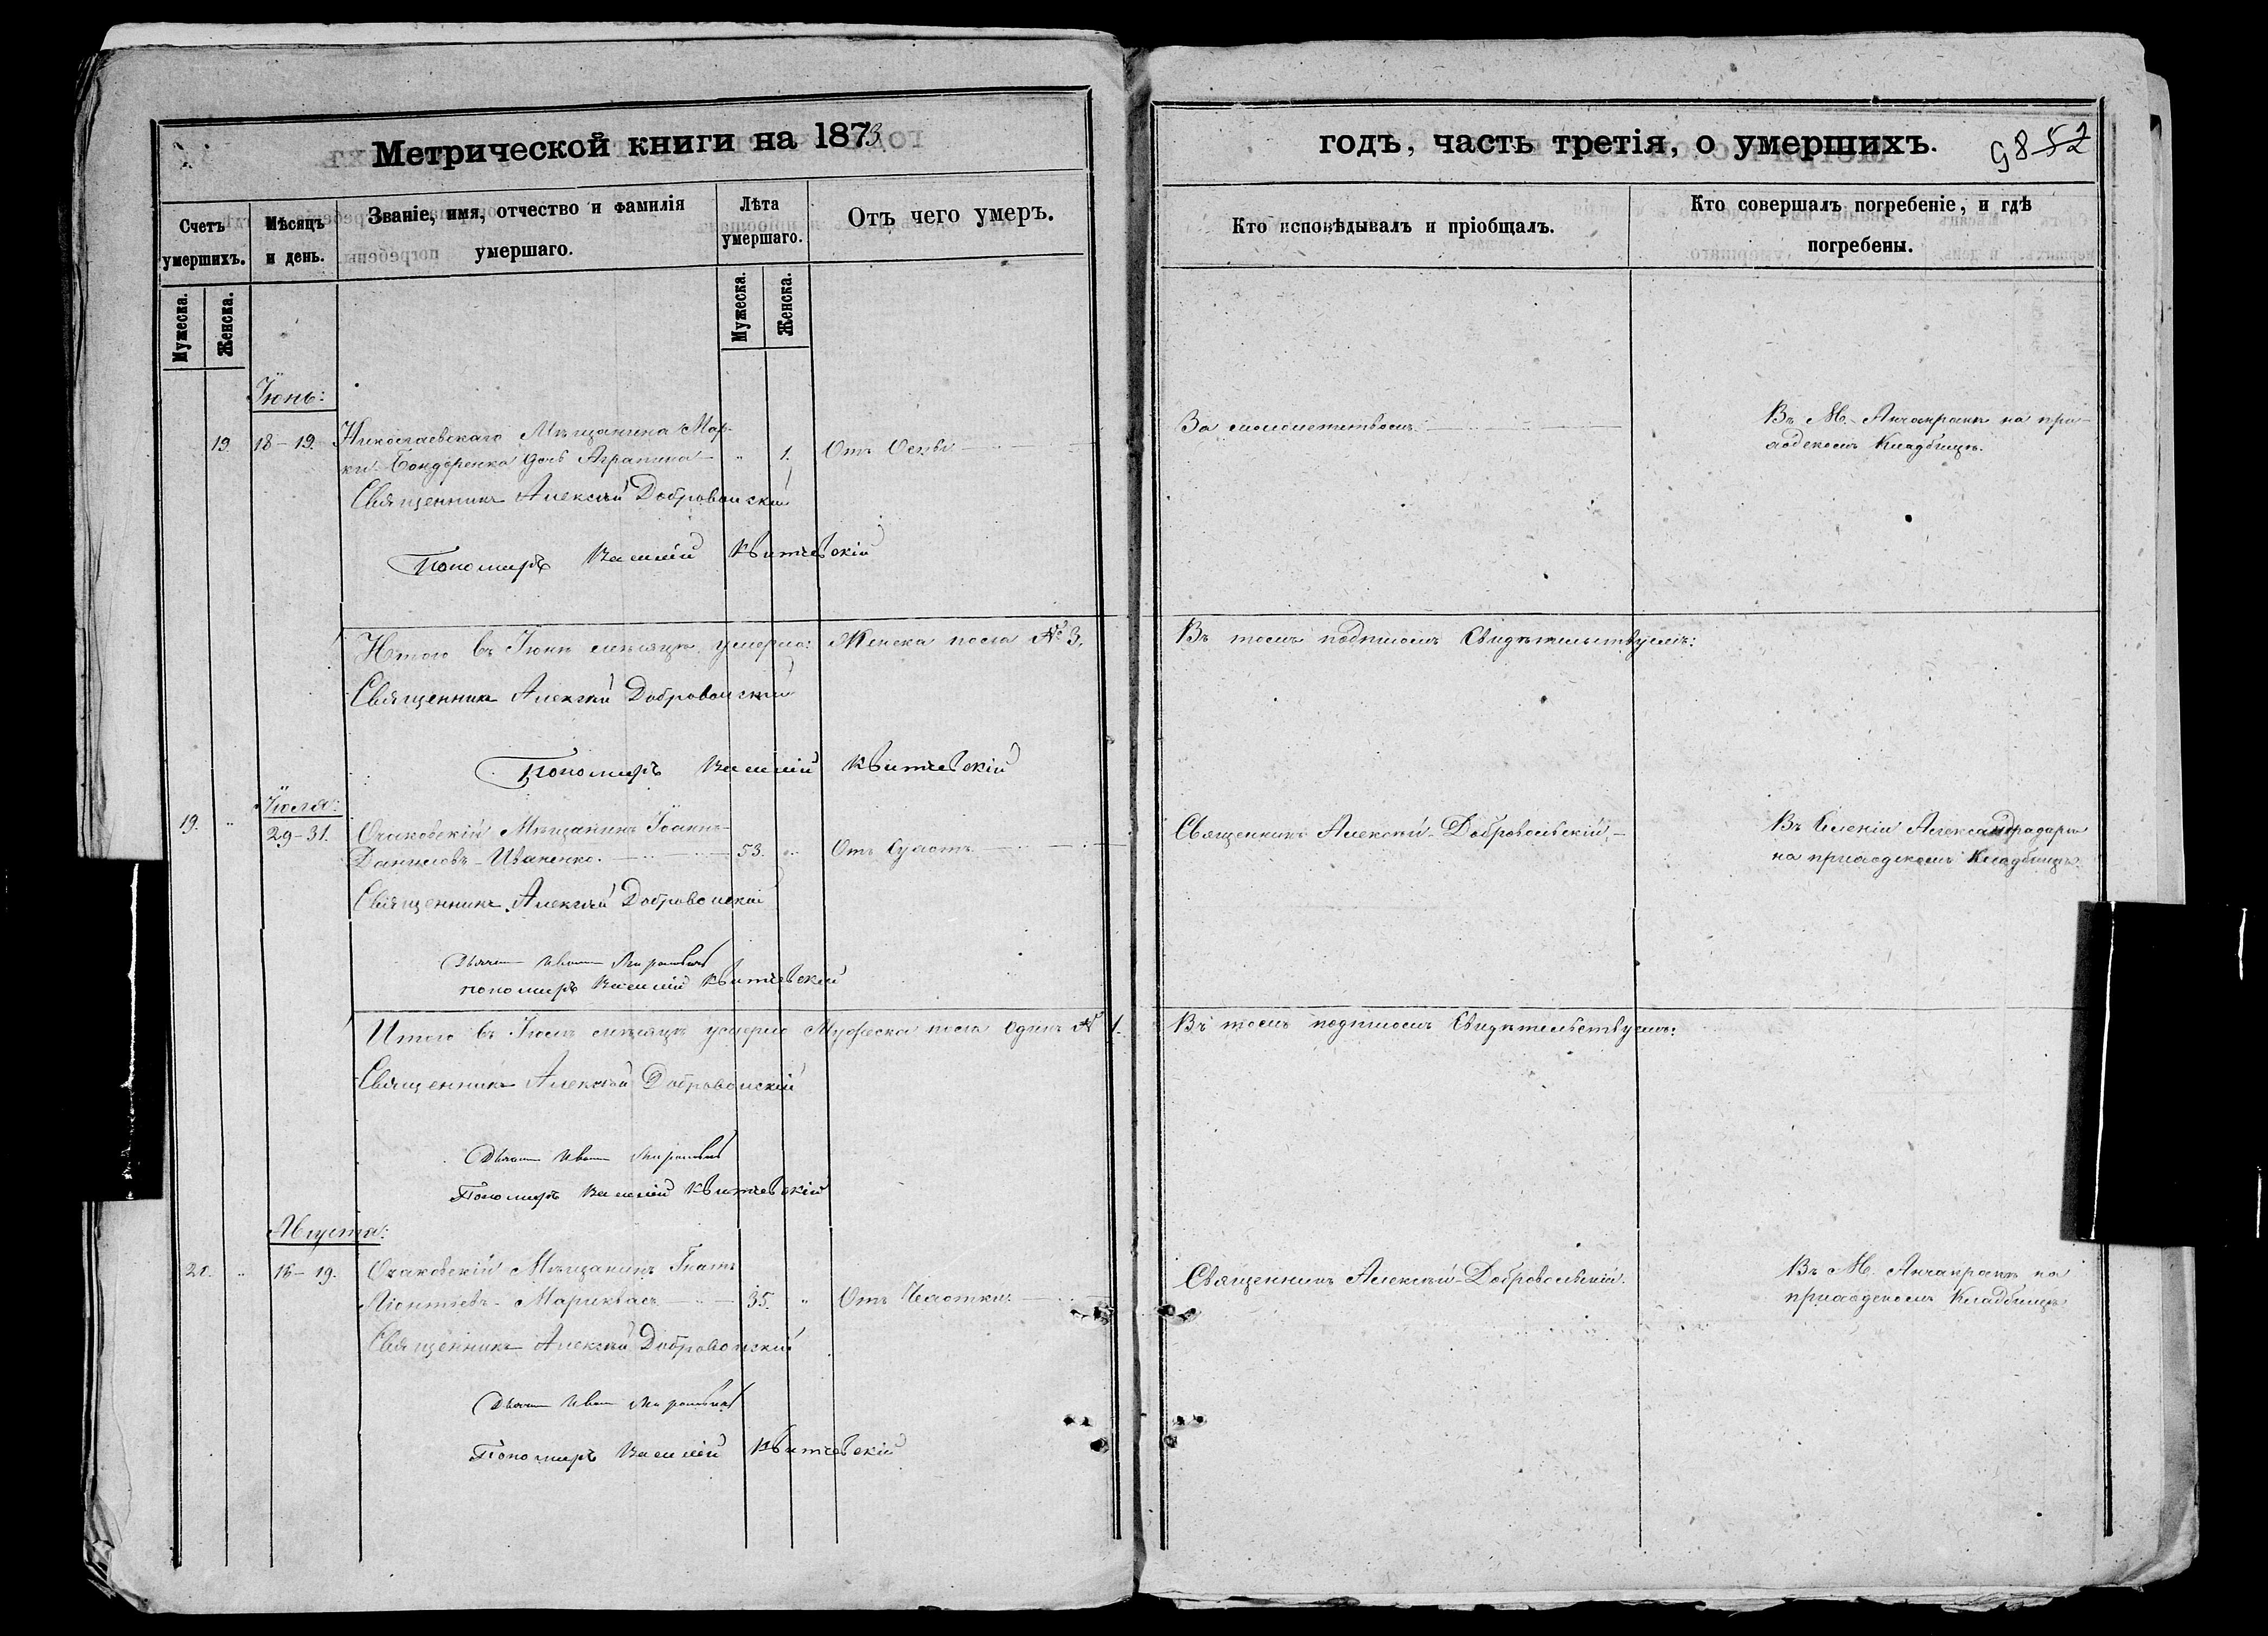 Метрической книги на 1873
годъ, часть третія, о умершихъ.
98 52
Счетъ умершихъ.
Мѣсяцъ и день.
Званіе, имя, отчество и фамилія умершаго.
Лѣта умершаго.
Отъ чего умеръ.
Кто исповѣдывалъ и пріобщалъ.
Кто совершалъ погребеніе, и гдѣ погребены.
Мужеска.
Женска.
Мужеска.
Женска.
Іюнь:
19. 18-19. Николаевскаго Мѣщанина Мар-
ки Бондаренка дочь Агрипина " 1. Отъ Оспы
За малолетствомъ.
Въ М. Анчакракѣ на при-
ходскомъ Кладбищѣ.
Священникъ Алексѣй Добровольскій
Пономарь Василій
Итого въ Іюнѣ мѣсяцѣ умерло: Женска пола № 3.
Въ томъ подписомъ Свидѣтельствуемъ:
Священникъ Алексѣй Добровольскій
Пономарь Василій
Іюля:
19. " 29-31. Очаковскій Мѣщанинъ Іоаннъ
Даниловъ Иваненко. 53. " Отъ
Священникъ Алексѣй Добровольскій
Въ Селеніи Александродарѣ
на приходскомъ Кладбищѣ.
Священникъ Алексѣй Добровольскій
Дьячокъ Иванъ
пономарь Василій
Итого въ Іюлѣ мѣсяцѣ умерло Мужеска пола Одинъ № 1.
Въ томъ подписомъ Свидѣтельствуемъ:
Священникъ Алексѣй Добровольскій
Дьячокъ Иванъ
Пономарь Василій
Августа:
20. " 16-19. Очаковскій Мѣщанинъ Игнатъ
Леонтіевъ 35. " Отъ Чахотки.
Священникъ Алексѣй Добровольскій.
Въ М. Анчакракѣ на
приходскомъ Кладбищѣ
Священникъ Алексѣй Добровольскій
Дьячокъ Иванъ
Пономарь Василій